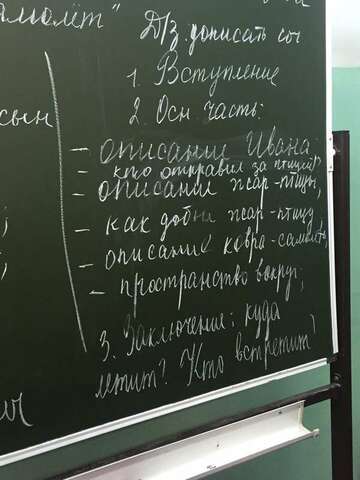 амолёт"
Д/з. дописать соч
1. Вступление
2. Осн. часть:
сын
- описание Ивана;
- кто отправил за птицей?
- описание жар-птицы,
- как добыл жар-птицу
- описание ковра-самолёта,
- пространство вокруг;
3. Заключение: куда
летит? Кто встретит?